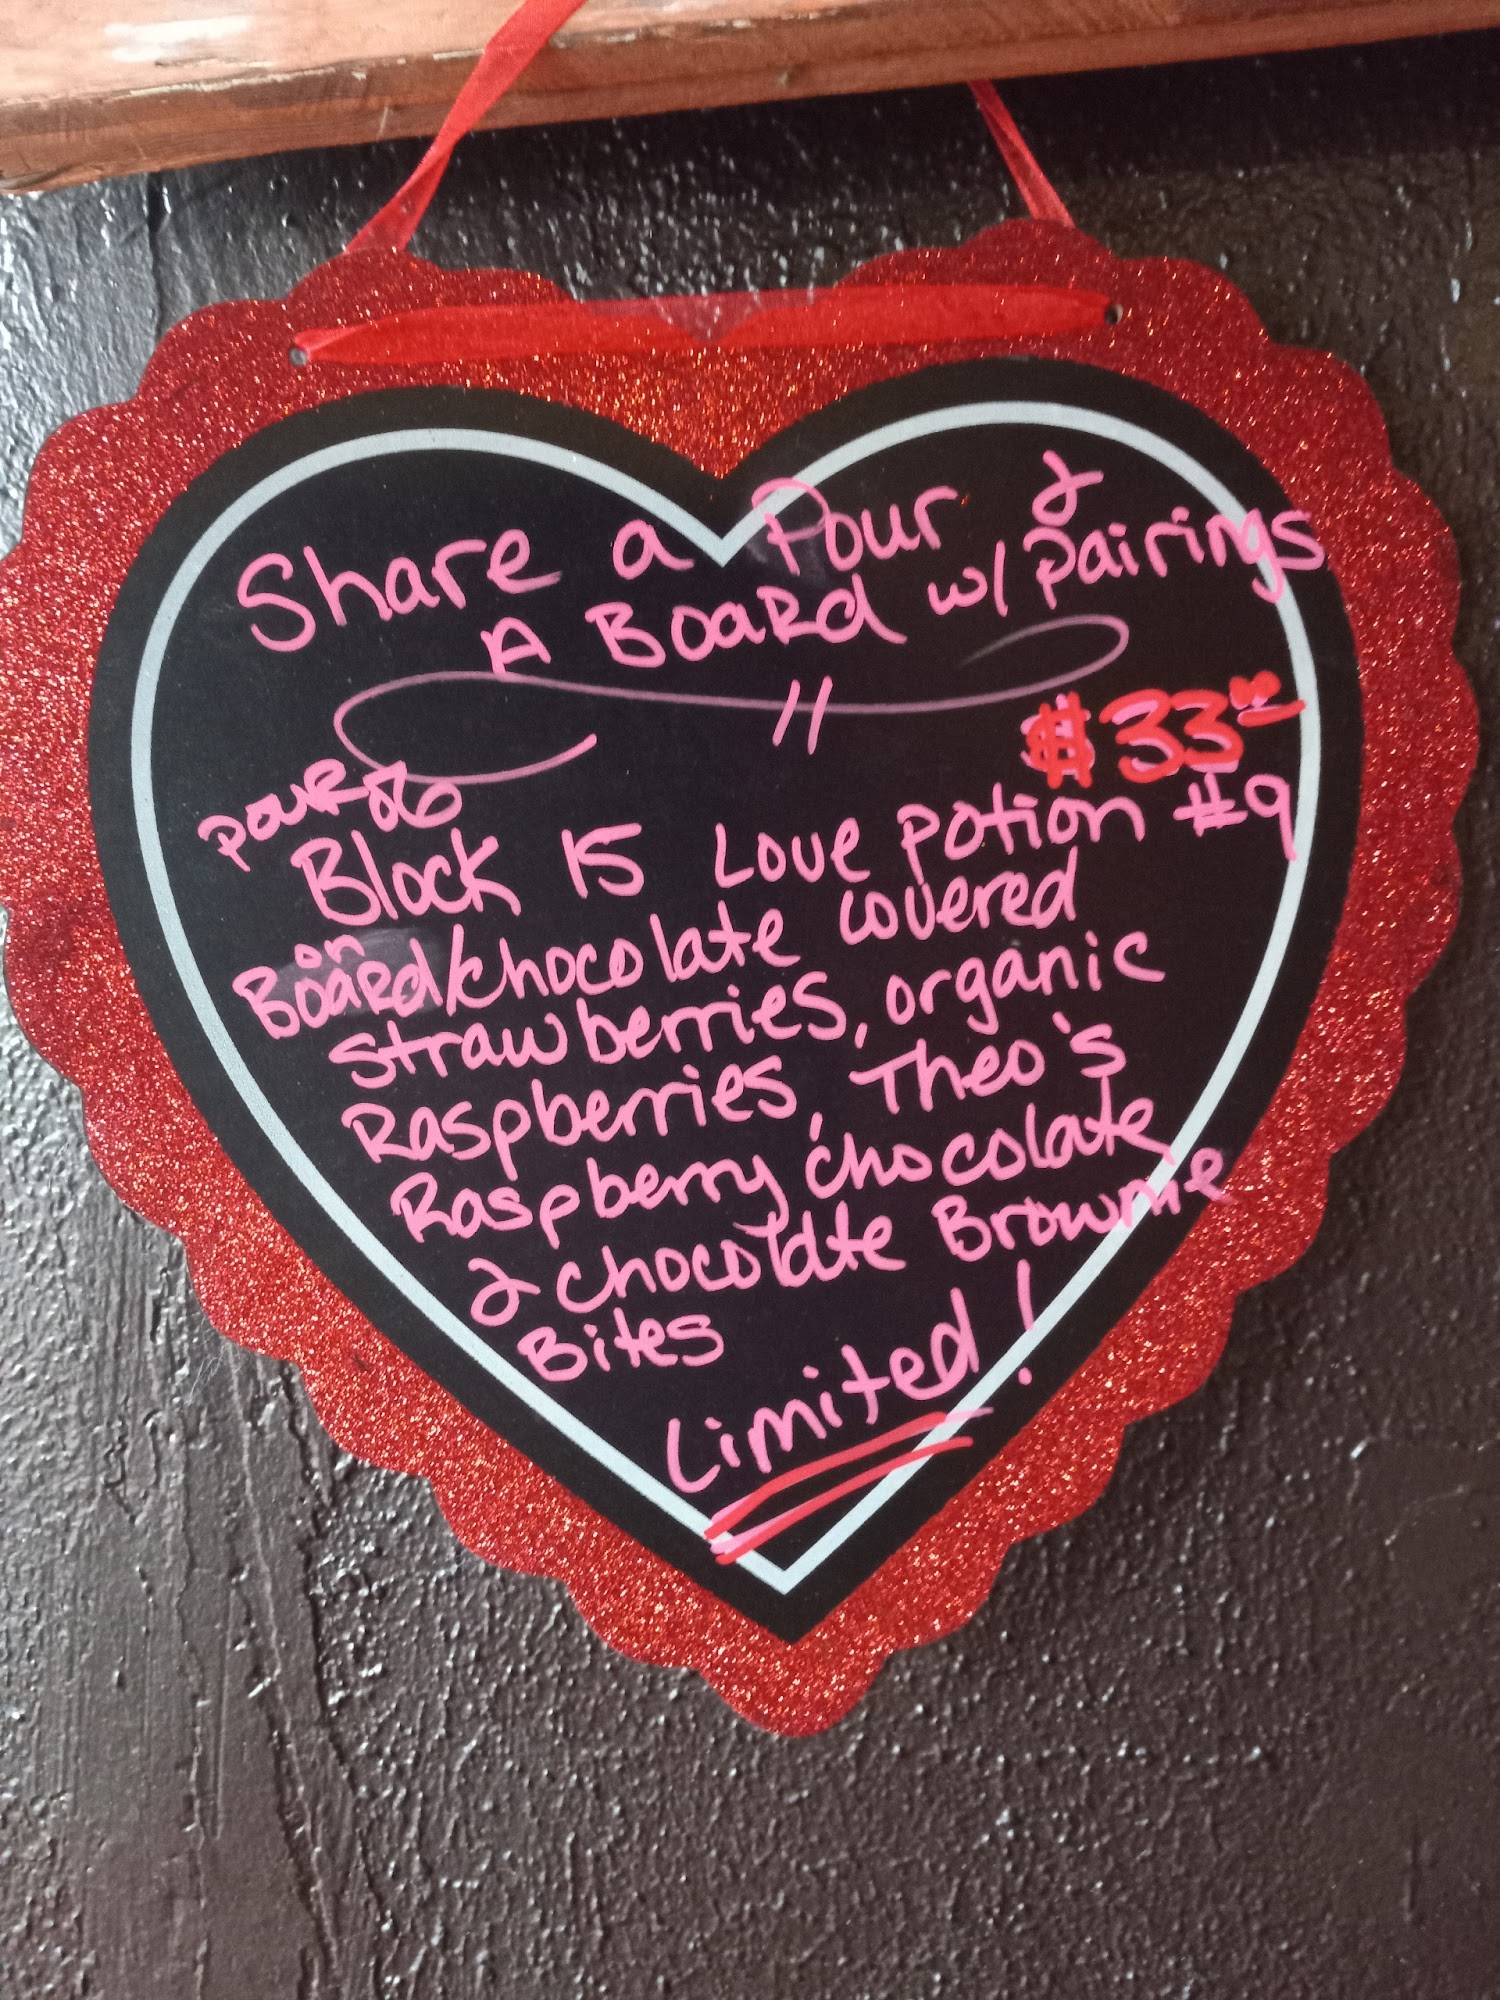 Share a Pour &
A Board w/ pairings
$33.00
Pour of
Block 15 Love potion #9
on
Board/chocolate covered
strawberries, organic
Raspberries, Theo's
Raspberry chocolate
& chocolate Brownie
Bites
Limited!